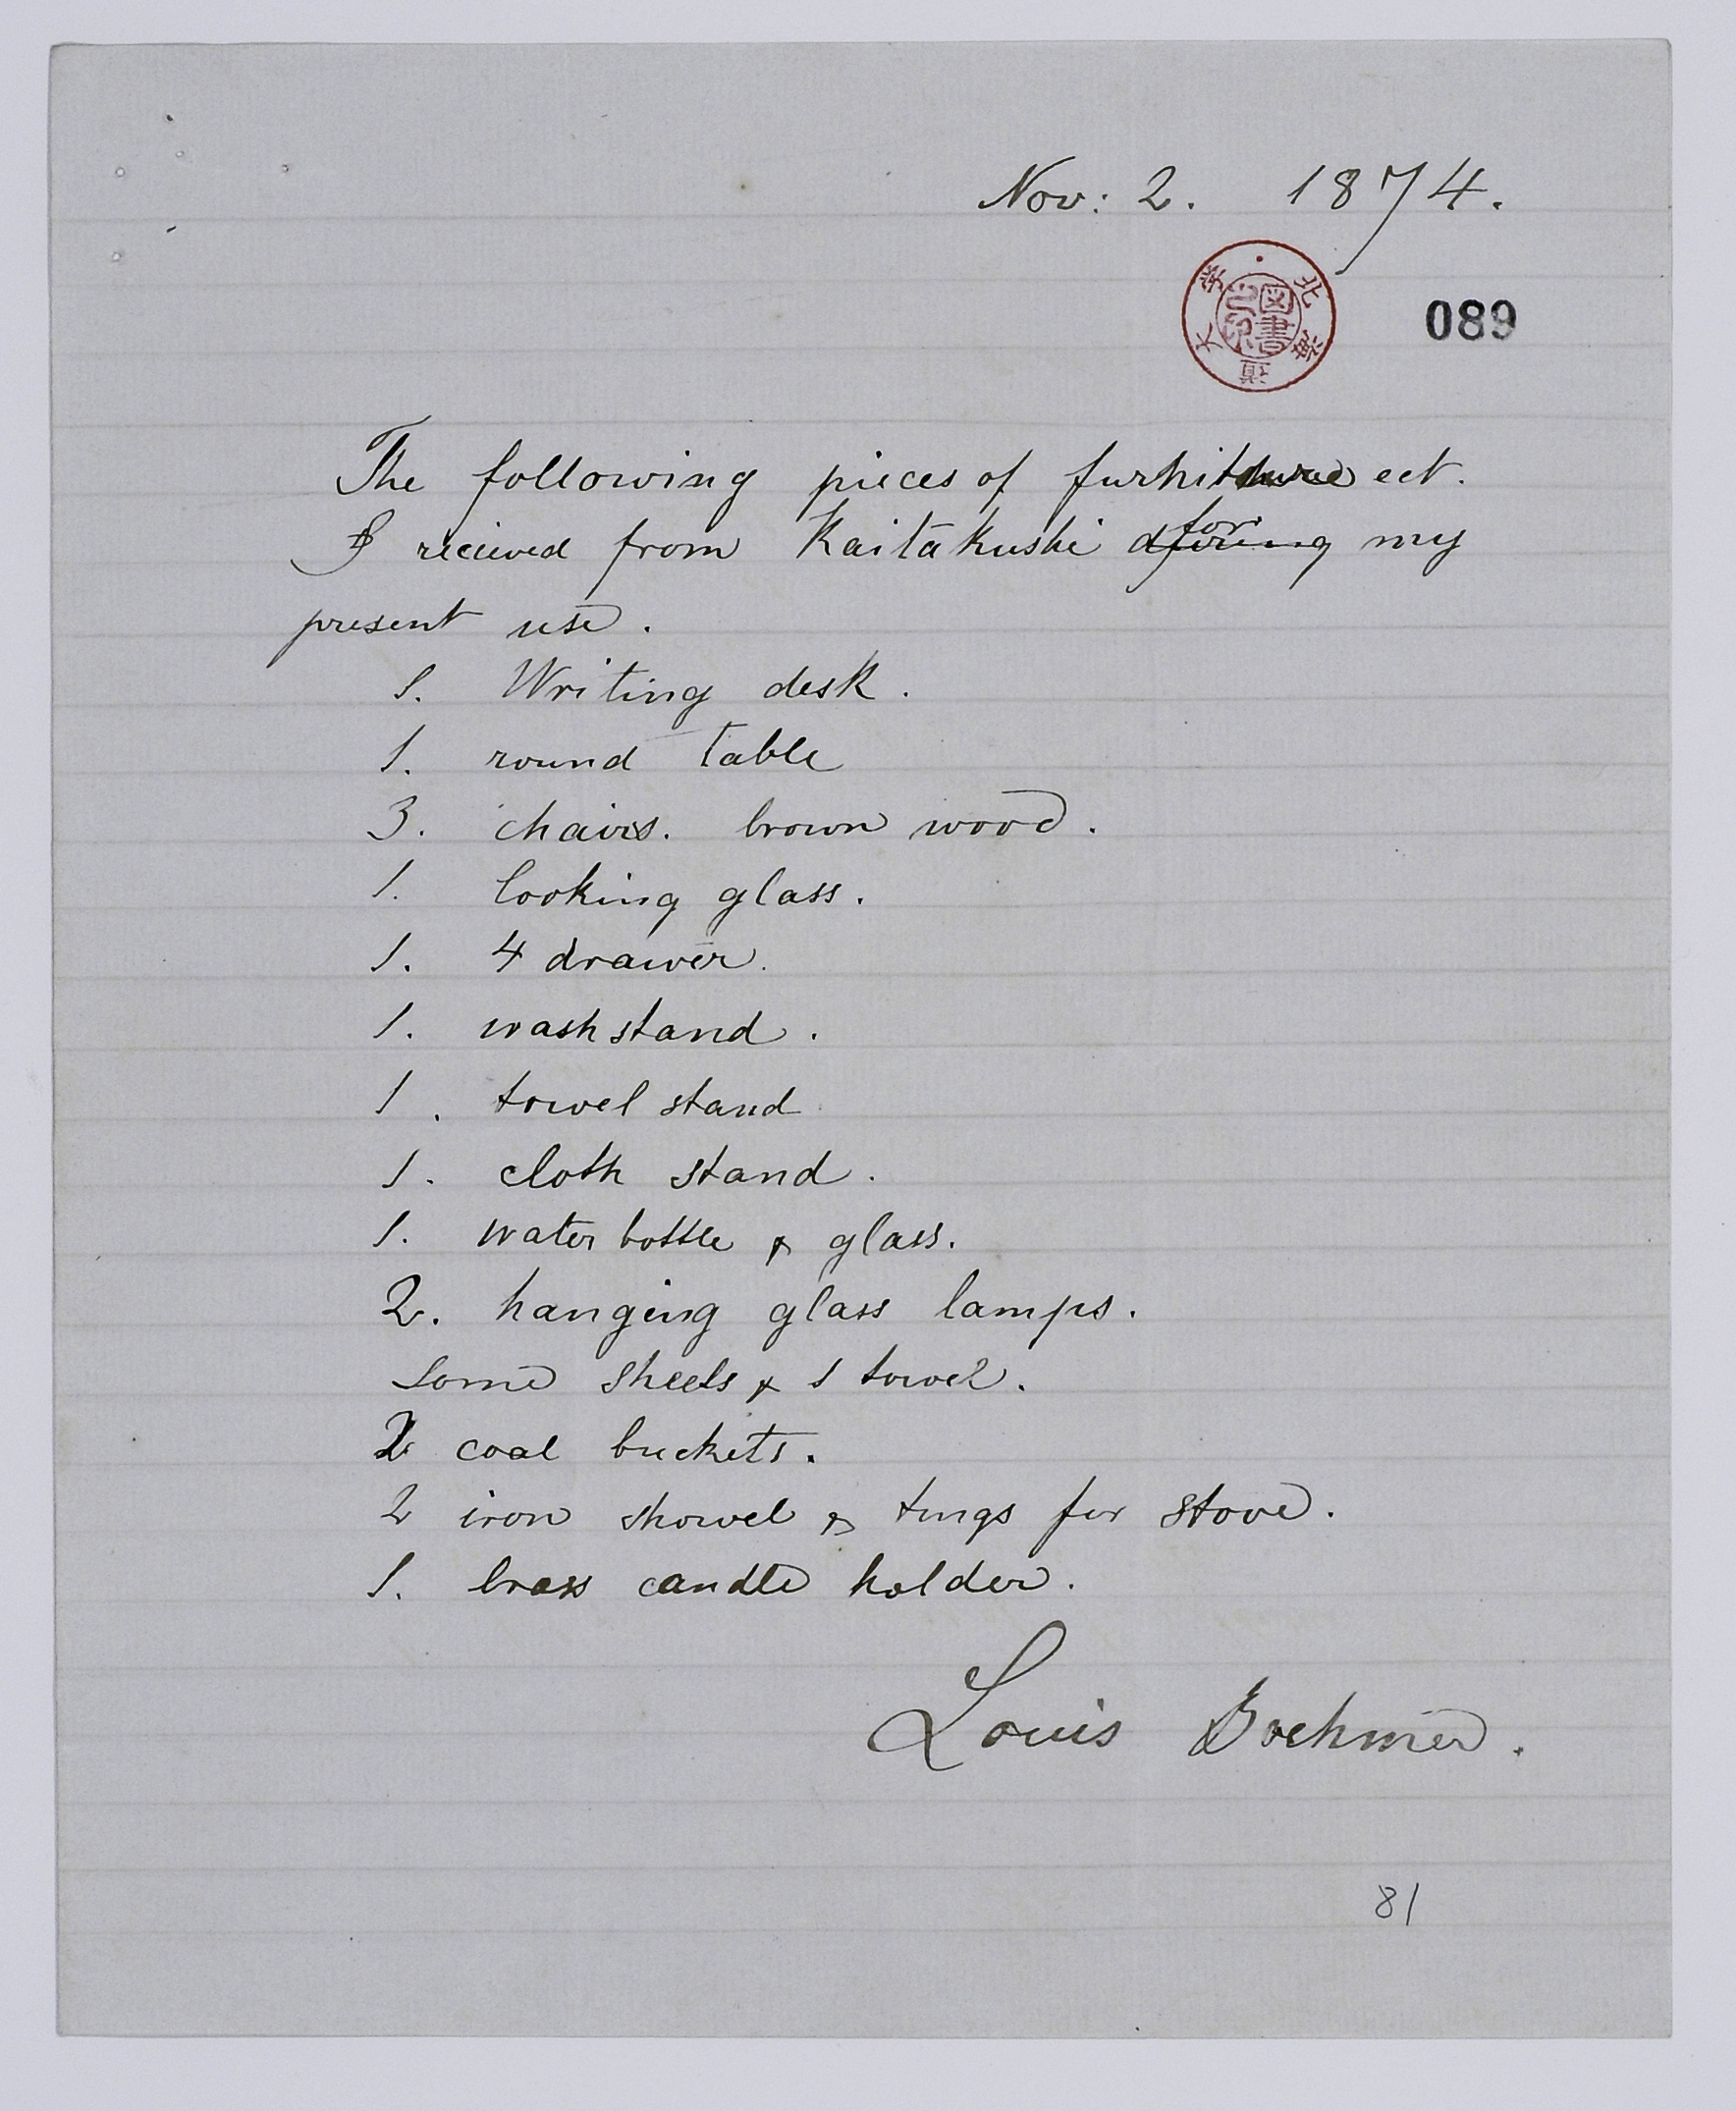 Nov: 2. 1874.
北海道大学
図書之印
089
The following pieces of furniture ect.
I recieved from Kaitakushi for my
present use.
1. Writing desk.
1. round table
3. chairs. brown wood.
1. looking glass.
1. 4 drawer.
1. wash stand.
1. towel stand
1. cloth stand.
1. water bottle & glass.
2. hanging glass lamps.
Some sheets & 1 towel.
2 coal buckets.
2 iron showel & tungs for stove.
1. brass candle holder.
Louis Boehmer.
81